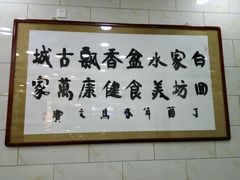 白家水盆香飘古城
回坊美食健康万家
丁酉年春马文宝